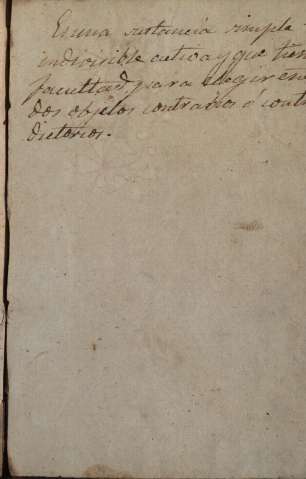 Es una sustancia simple
indivisible activa y que tien
facultad para elegir en
dos objetos contrarios ó cont
dictorios.